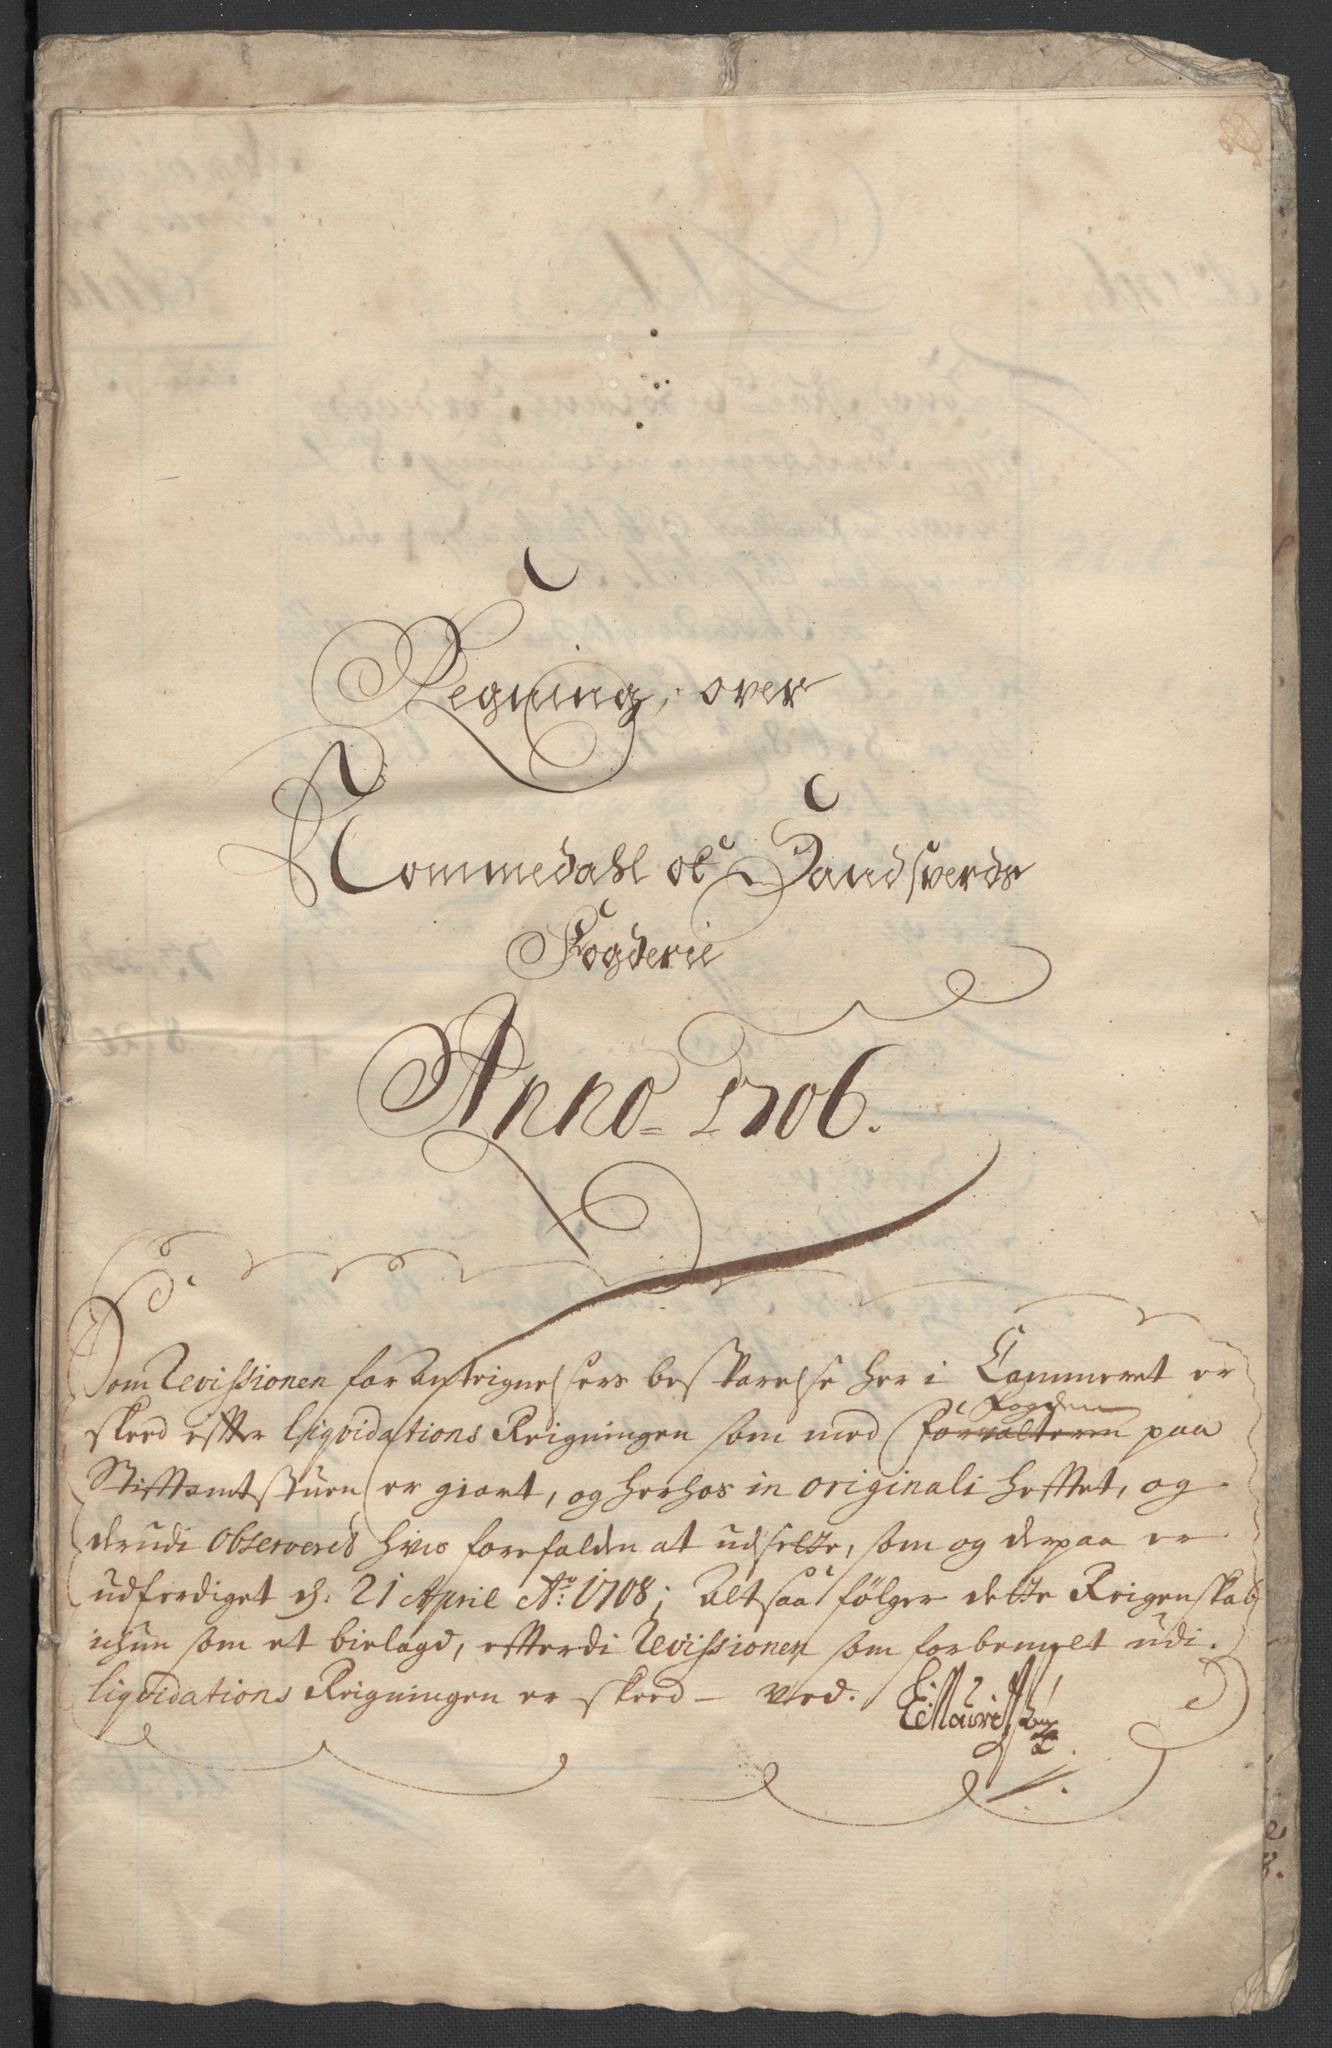 Regning, over
Nommedahl oc Sandsverds
Fogderie
Anno 1706.
Som Revissionen for Anteignelsers beskarelse her i Cammeret er
skeed effter liqvidations Reigningen som med Fogden paa
Stifftamtstuen er giort, og herhos in originali hefftet, og
derudi observeret hvis forefalden at udsette, som og derpaa er
udferdiget d: 21 April Ao: 1708; Altsaa følger dette Reigenskab
ichun som et bielagd, efterdi Revissionen som forbemelt udi
liqvidations Reigningen er skeed – ved.